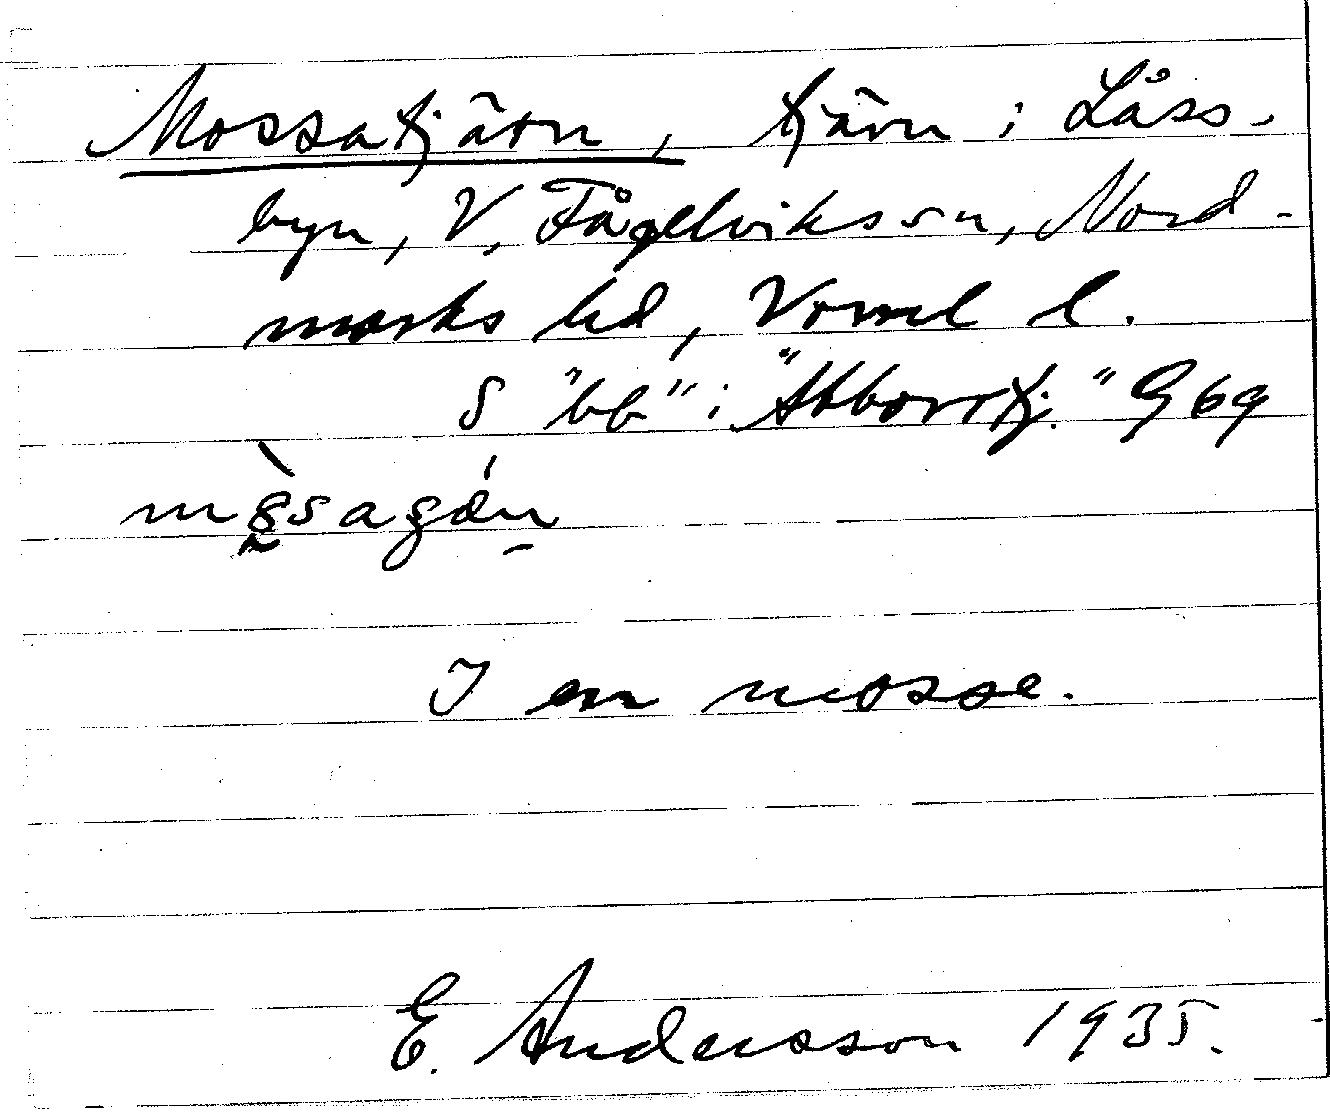 Mossatjärn, tjärn i Låss-
byn, V. Fågelviks sn, Nord-
marks hd, Värml l.
S "bb" i "Abborrtj." G 69
I en mosse.
E. Andersson 1935.